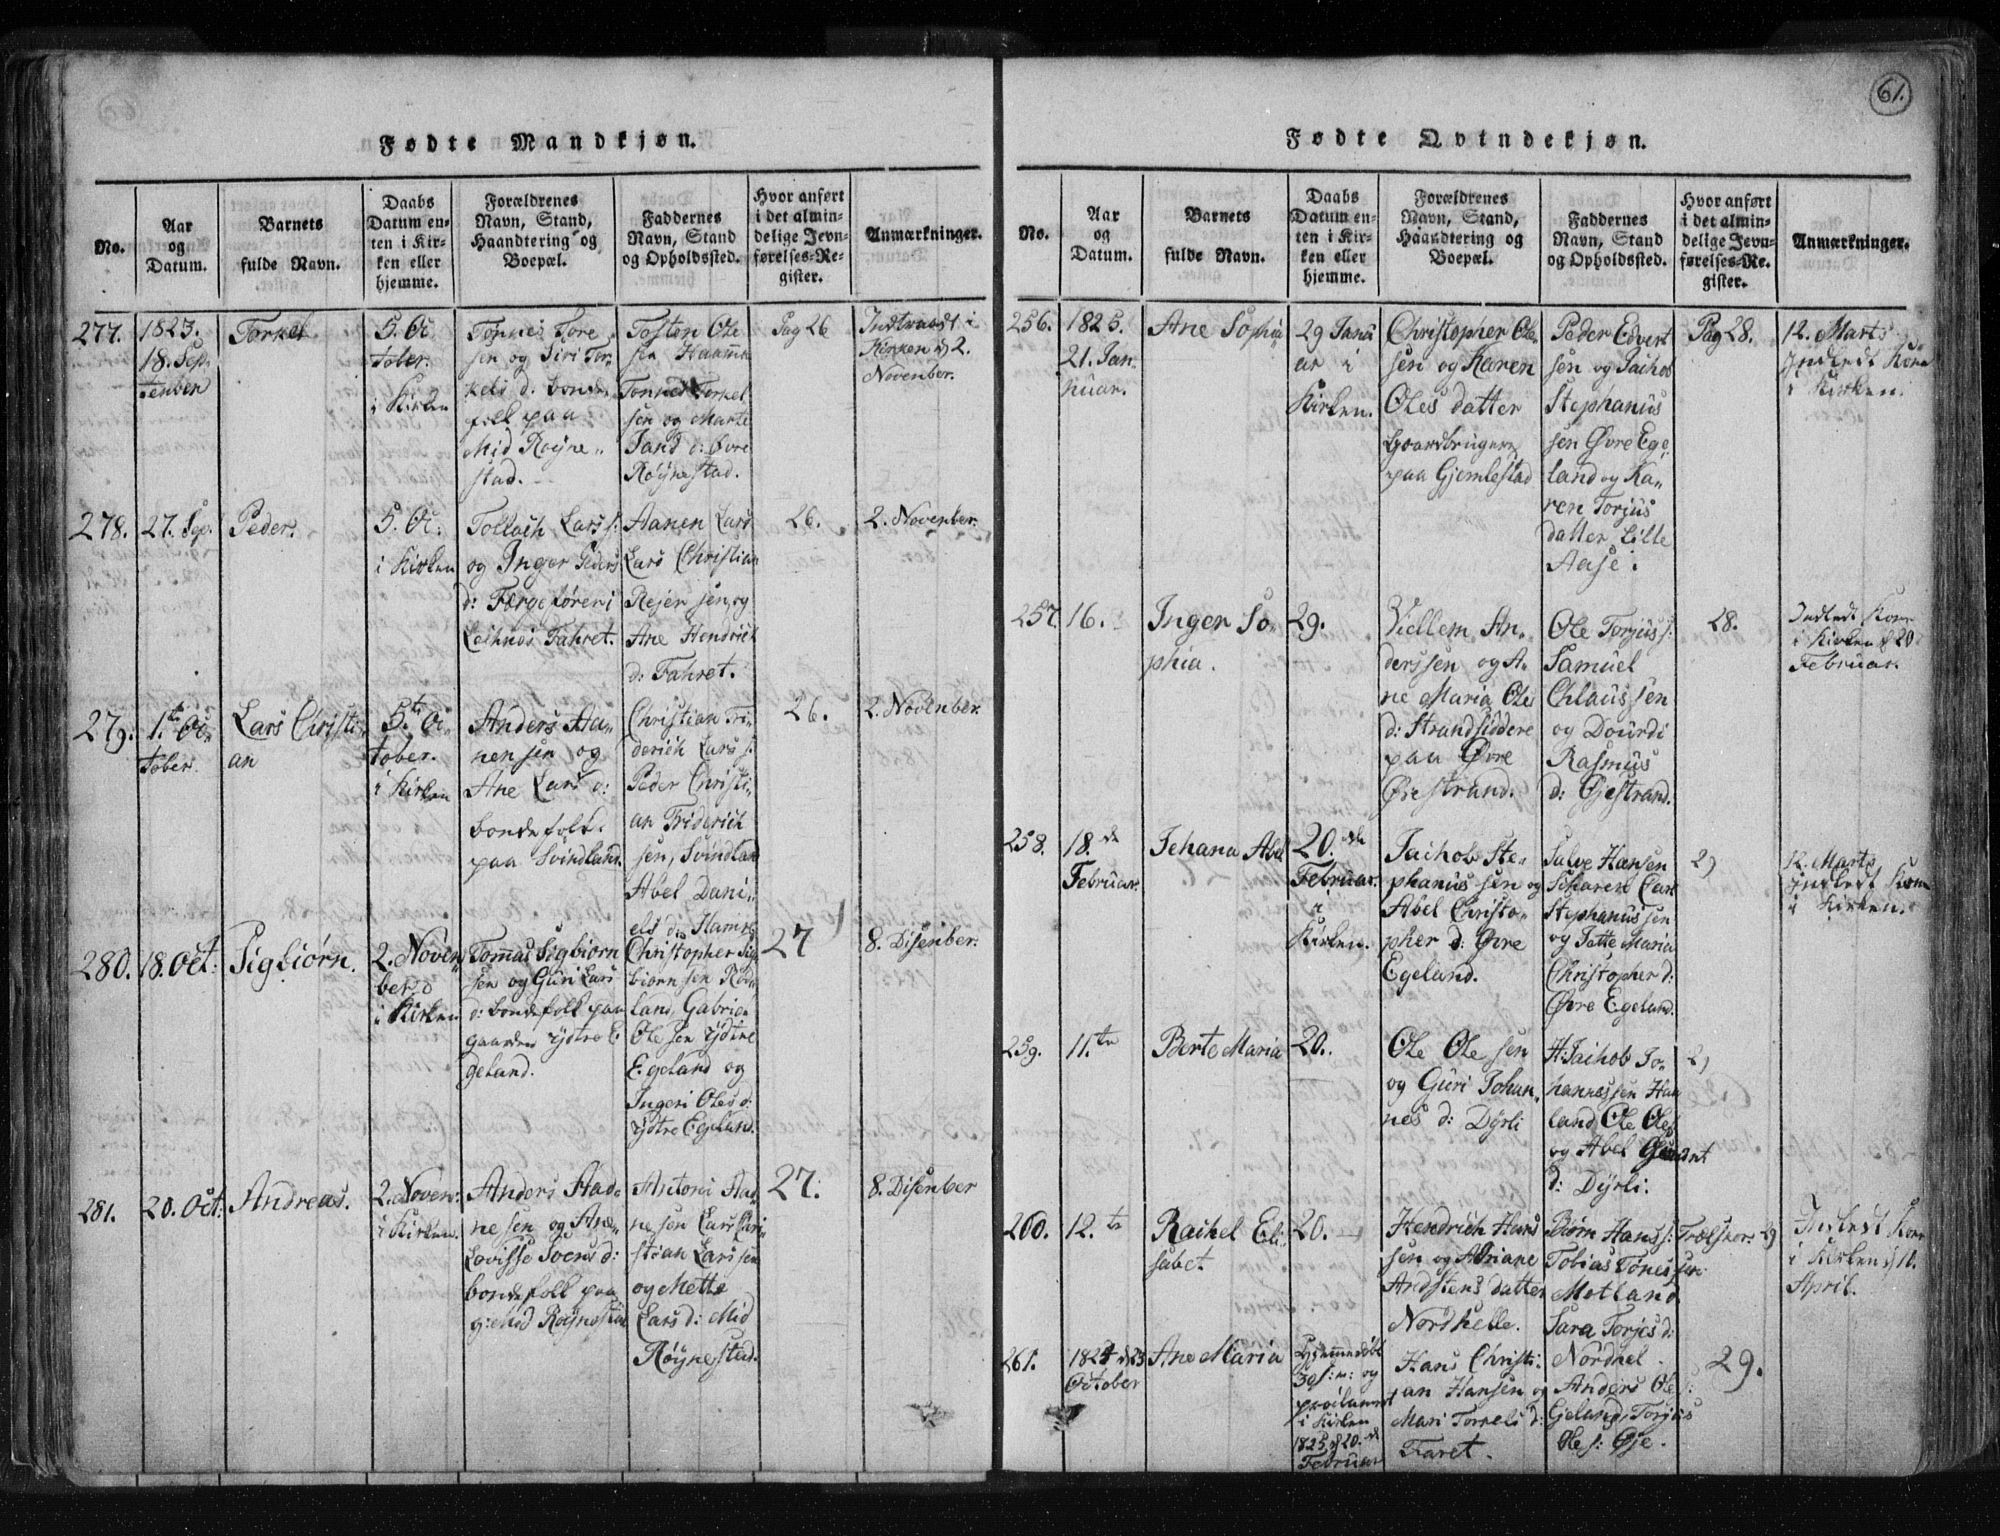 61.
Fødte Mandkjøn.
No.
Aar
og
Datum.
Barnets
fulde Navn.
Daabs
Datum en-
ten i Kir-
ken eller
hjemme.
Forældrenes
Navn, Stand,
Haandtering og
Boepæl.
Faddernes
Navn, Stand
og Opholdssted.
Hvor anført
i det almin-
delige Jevn-
førelses-Re-
gister.
Anmærkninger.
277.
1823.
18. Sep-
tember
Torkel
5. Oc
tober.
i Kirken
Tønnes Tore
sen og Siri Tor
kels d: bonde
folk paa
Mid Røyne„
stad.
Tosten Ole
sen
Tønnes Torkel
sen og Marte
d: Øvre
Røÿnestad.
Pag 26
i
Kirken d 2.
November.
278.
27. Sep.
Peder.
5. Oc:
i Kirken
Tollach Lars s:
og Inger Peders
d: Færgefører i
Fahret.
Aanen Lars
Lars Christian
Rejersen, og
Ane Hendrich
d: Fahret.
26.
2. November.
279.
1.te Oc
tober.
Lars Christi
an
5.te Oc
tober.
i Kirken
Anders Aa„
nensen og
Ane Lars d:
bondefolk.
paa Svindland.
Christian Fri
derich Lars s:
Peder Christi
an Friderich
sen, Svindland
Abel Dani„
els d:
26.
2. November.
280.
18. Oct:
Sigbiørn.
2. Novem
ber
i Kirken
Tommas Sigbiørn
sen og Guri Lars
d: bondefolk paa
gaarden Ydtre E
geland.
Christopher Sig
biørnsen
land, Gabriel
Olesen Ydtre
Egeland og
Ingeri Oles d:
Ydtre Egeland.
27
8. Disember:
281.
20. Oct:
Andreas.
2. Novem:
i Kirken.
Anders Aad„
nesen og Ane
Lovisse d:
bondefolk paa
g: Mid Røynestad
Antoni Aad
nesen Lars Chri
stian Larssen
og Mette
Lars d: Mid
Røynestad.
27.
8. Disember
Fødte Qvindekjøn.
No.
Aar
og
Datum.
Barnets
fulde Navn.
Daabs
Datum en-
ten i Kir-
ken eller
hjemme.
Forældrenes
Navn, Stand,
Haandtering og
Boepæl.
Faddernes
Navn, Stand
og Opholdssted.
Hvor anført
i det almin-
delige Jevn-
førelses-Re-
gister.
Anmærkninger.
256.
1825.
21. Jan„
nuar.
Ane Sophia
29 Janu
ar i
Kirken.
Christopher Ole„
sen og Karen
Oles datter
Gaardbrugere
paa Gjemlestad
Peder Edvert
sen og Jachob
Stephanus
sen Øvre Ege„
land og Ka„
ren Torjus
datter Lille
Aase.
Pag 28.
12. Marts
Indledt Kone
i Kirken.
257.
16.
Inger So„
phia.
29.
Viellem An„
derssen og A„
ne Maria Oles
d: Strandsiddere
paa Øvre
Øiestrand.
Ole Torjus s:
Samuel
Chlaussen
og Dourdi
Rasmus
d: Øjestrand.
28.
Indledt Kone
i Kirken d 20
Februar.
258.
18.de
Februar.
Jehana Abel
20.de
Februar.
i
Kirken.
Jachob Ste„
phanussen og
Abel Christo„
pher d: Øvre
Egeland.
Salve Hansen
Carl
Stephanussen
og Jatte Maria
Christopher d:
Øvre Egeland.
29
12. Marts
Indledt Kone
i Kirken.
259.
11.te
Berte Maria
20.
Ole Olesen
og Guri Johan„
nes d: Dÿrli
H: Jachob Jo„
hannessen Hau
land, Ole Oles
og Abel
d: Dÿrli.
29
260.
12.te
Rachel Eli
sabet.
20.
Hendrich Hans
sen og Adriane
datter
Nordhelle.
Biørn Hans s:
Tobias Tønessen
Motland
Sara Torjes d:
Nordhel
29
Indledt Kone
i Kirken d 11.
April.
261.
1824 d 23
October
Ane Maria
og
i Kirken
1825 d 20.de
Februar
Hans Christi„
an Hansen og
Mari Torkels d:
Faret.
Anders Ole s:
Egeland, Torjus
Ole s: Øje.
29.